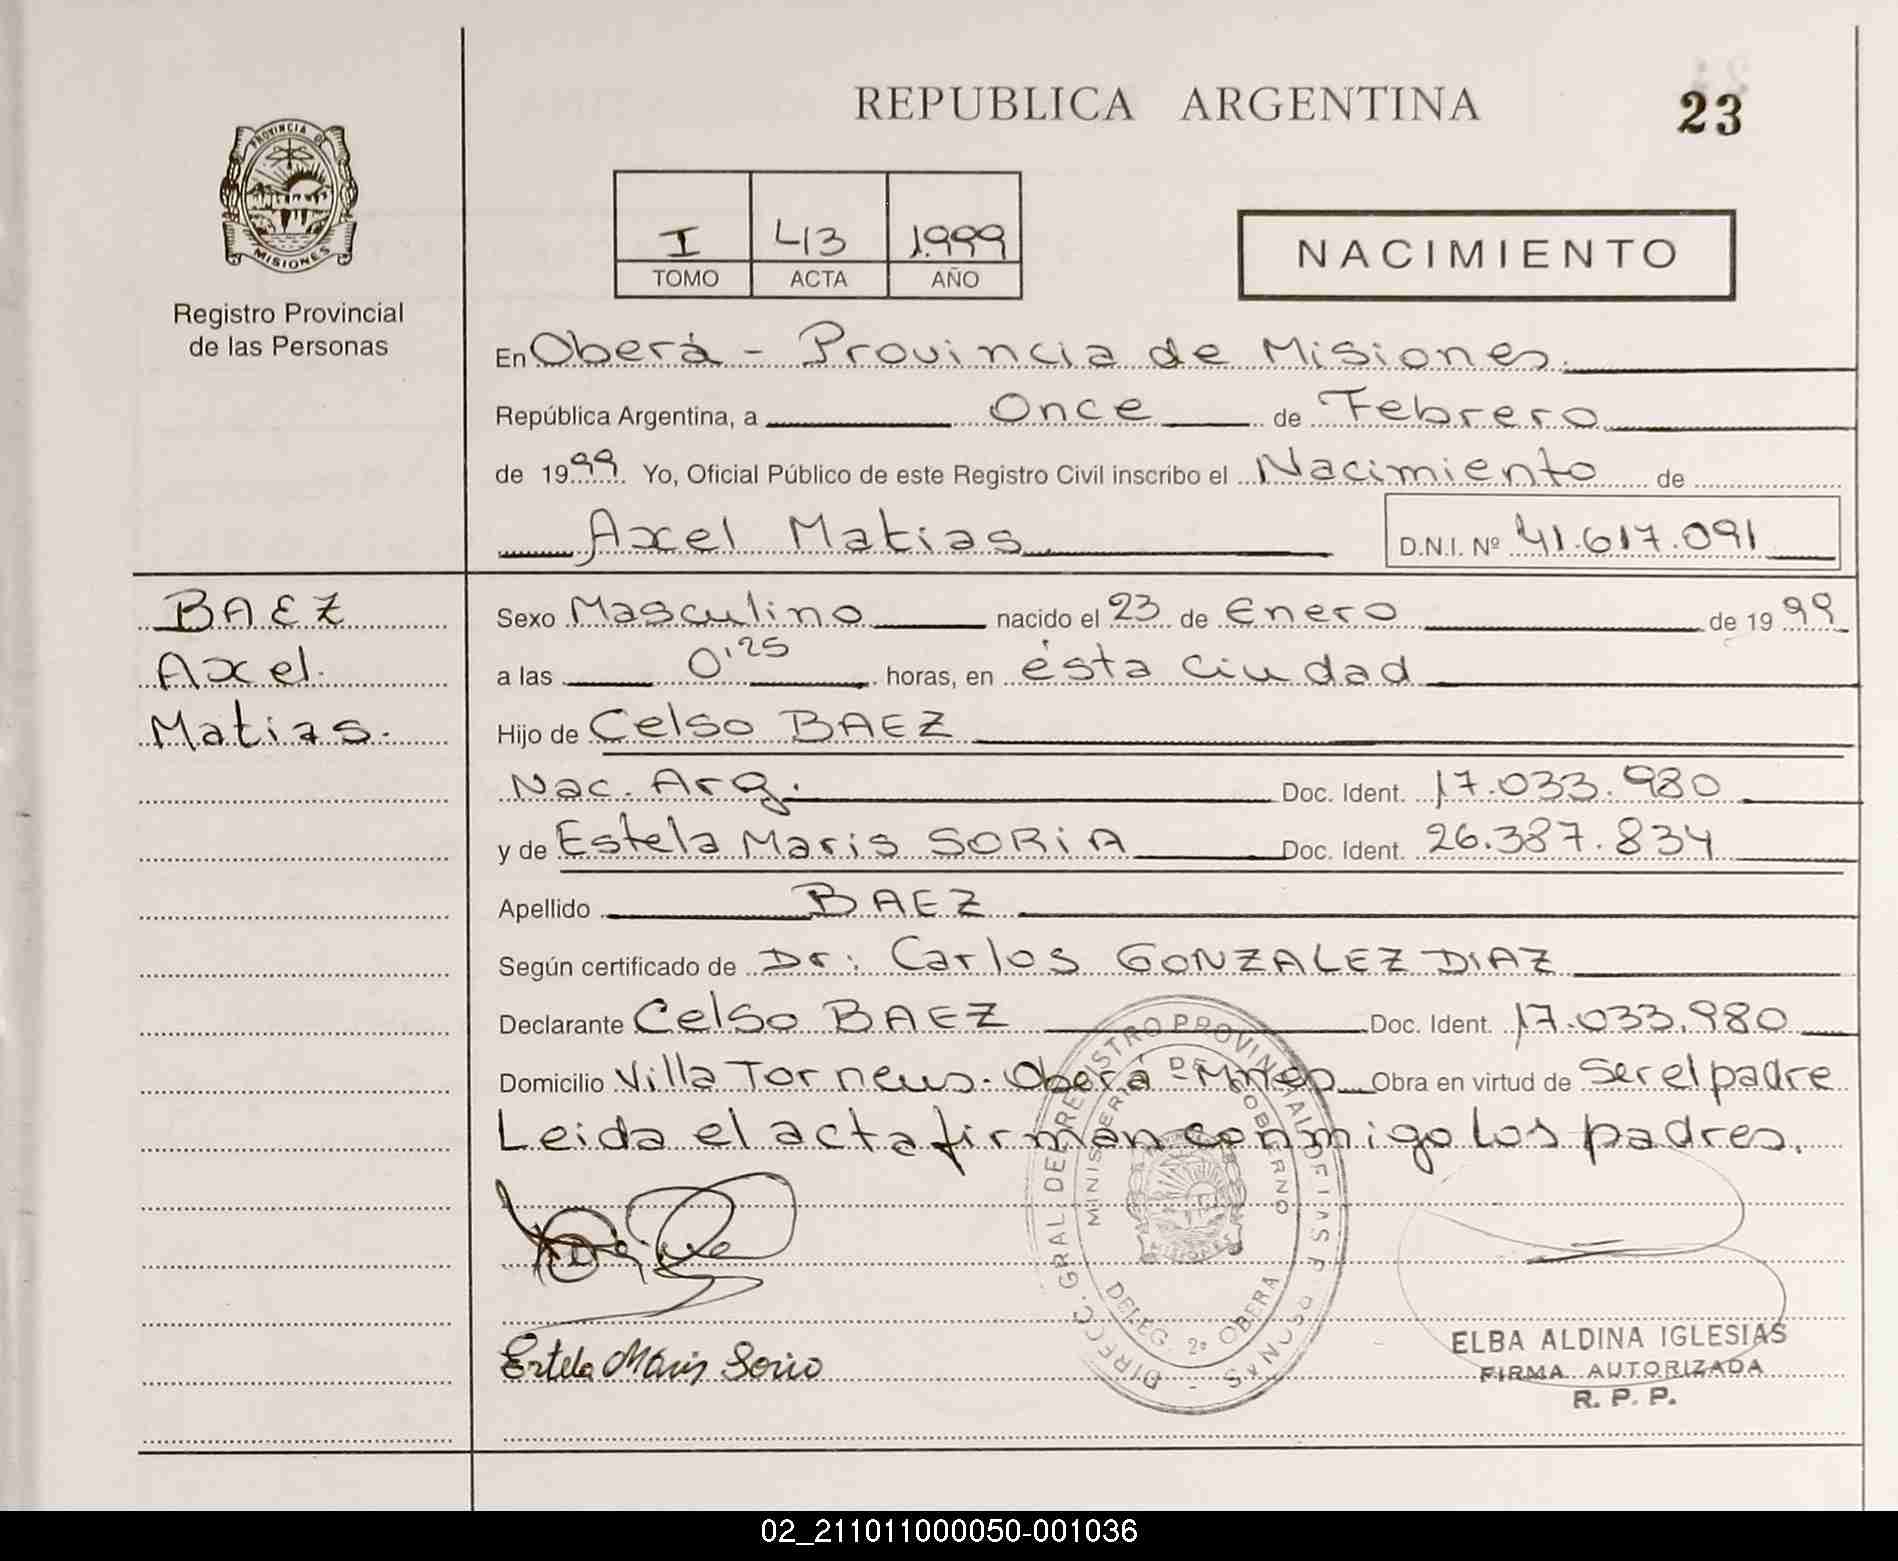 REPUBLICA ARGENTINA
23
PROVINCIA DE
MISIONES
Registro Provincial
de las Personas
I 413 1.999
TOMO ACTA AÑO
NACIMIENTO
En Oberá - Provincia de Misiones.
República Argentina, a Once de Febrero
de 1999 Yo, Oficial Público de este Registro Civil inscribo el Nacimiento de
Axel Matias D.N.I. Nº 41.617.091
BAEZ
Axel.
Matias.
Sexo Masculino nacido el 23 de Enero de 1999
a las 0'25 horas, en ésta Ciudad
Hijo de Celso BAEZ
Nac. Arg. Doc. Ident. 17.033.980
y de Estela Maris SORiA Doc. Ident. 26.387.834
Apellido BAEZ
Según certificado de Dr: Carlos GONZALEZ DIAZ
Declarante Celso BAEZ Doc. Ident. 17.033.980
Domicilio Villa Torneus. Oberá Mnes Obra en virtud de Ser el padre
Leida el acta firman conmigo los padres.
DIRECC. GRAL DEL REGISTRO PROVINCIAL
MINISTERIO DE GOBIERNO
MISIONES
DELEG. 2ª OBERA
Estela Maris Soria
ELBA ALDINA IGLESIAS
FIRMA AUTORIZADA
R. P. P.
02_211011000050-001036